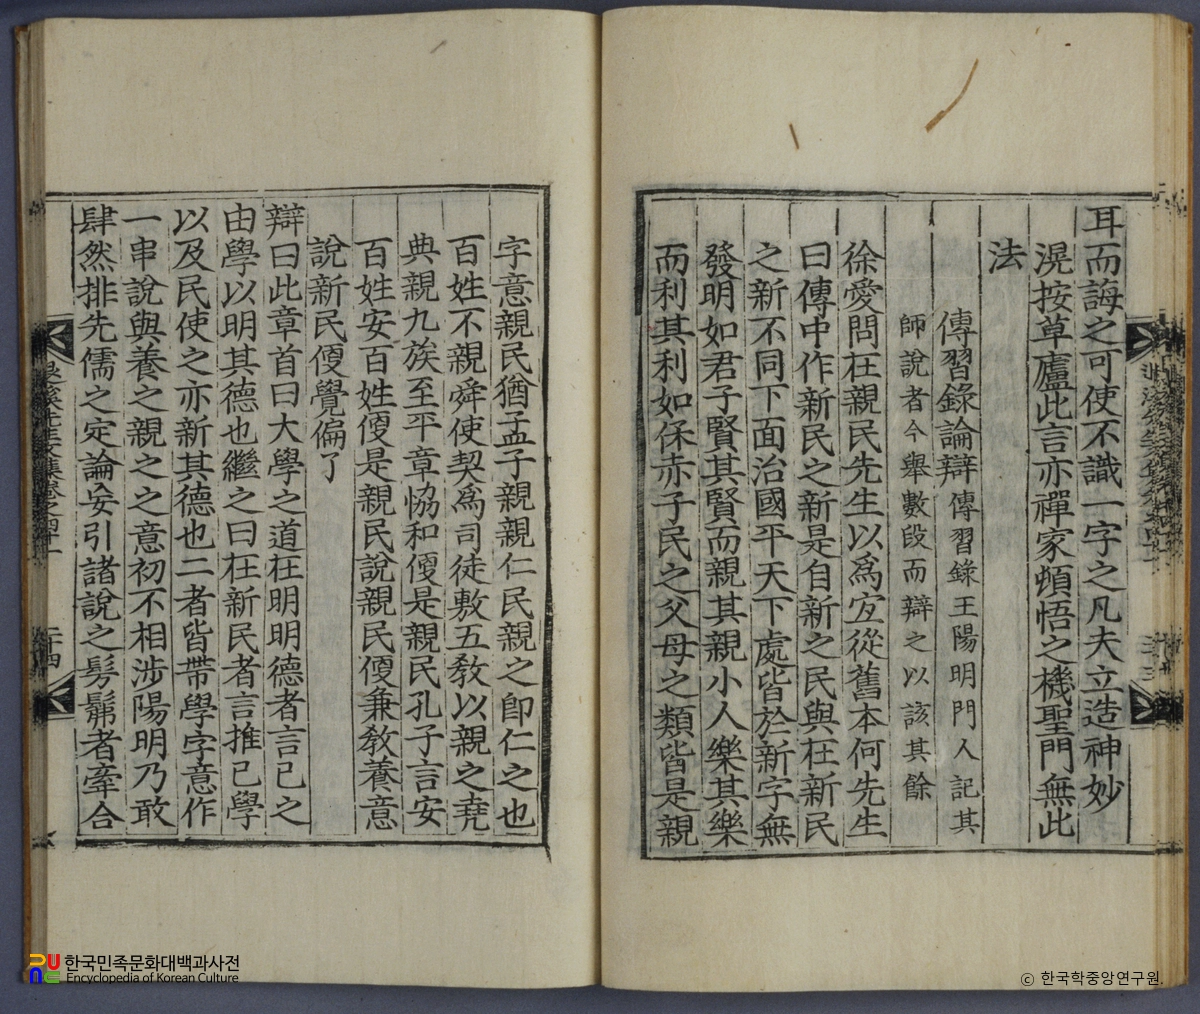 耳而誨之可使不識一字之凡夫立造神妙
滉按草廬此言亦禪家頓悟之機聖門無此
法
傳習錄論辯傳習錄王陽明門人記其
師說者今舉數段而辯之以該其餘
徐愛問在親民先生以爲宜從舊本何先生
曰傳中作新民之新是自新之民與在新民
之新不同下面治國平天下處皆於新字無
發明如君子賢其賢而親其親小人樂其樂
而利其利如保赤子民之父母之類皆是親
字意親民猶孟子親親仁民親之卽仁之也
百姓不親舜使契爲司徒敷五敎以親之堯
典親九族至平章協和便是親民孔子言安
百姓安百姓便是親民說親民便兼敎養意
說新民便覺偏了
辯曰此章首曰大學之道在明明德者言己之
由學以明其德也繼之曰在新民者言推己學
以及民使之亦新其德也二者皆帶學字意作
一串說與養之親之之意初不相涉陽明乃敢
肆然排先儒之定論妄引諸說之髣髴者牽合
退溪先生文集卷之四十一
二十四
한국민족문화대백과사전
Encyclopedia of Korean Culture
ⓒ 한국학중앙연구원.